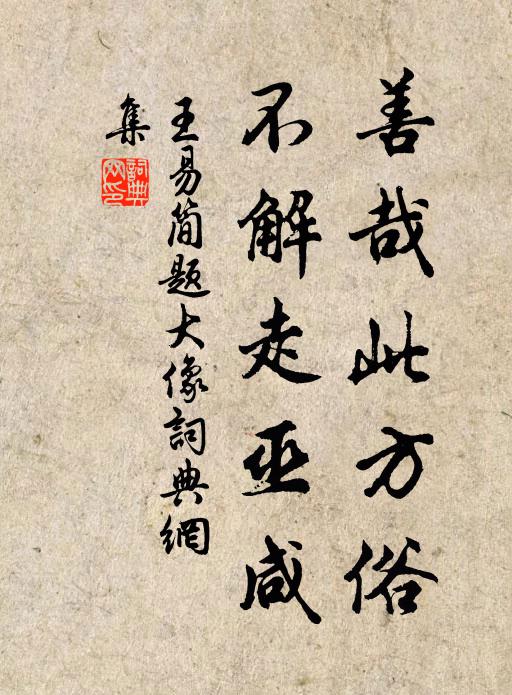 善哉此方俗
不解走巫咸
王易简题大像詞典網
集
詞典网印